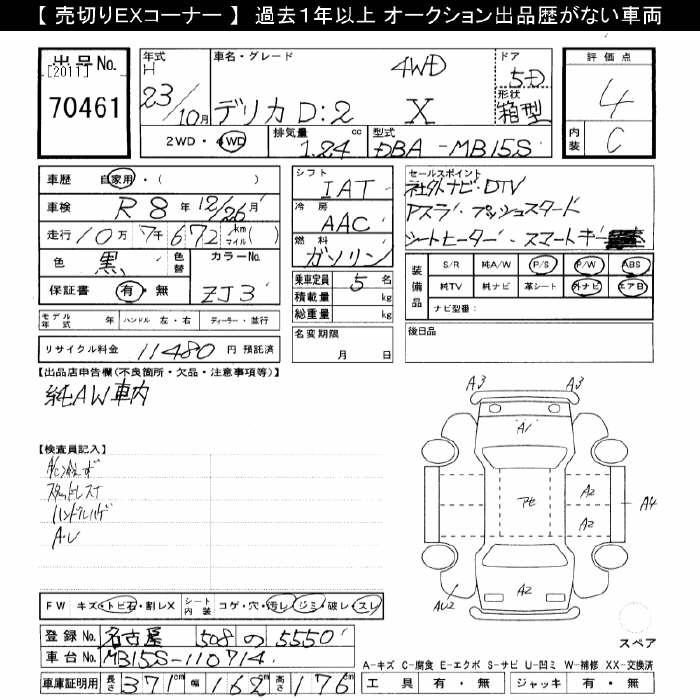 【 売切りEXコーナー 】 過去１年以上 オークション出品歴がない車両
出品No.
[2011]
70461
年式
H
23/10月
車名・グレード
4WD
デリカ D:2 X
ドア
5D
形状
箱型
評価点
4
内装
C
2WD・4WD
排気量 1.24 cc
型式 DBA-MB15S
車歴 自家用・( )
車検 R8年12/26月
走行 10万7千672 km マイル
色 黒 色替
カラーNo. ZJ3
保証書 有・無
シフト IAT
冷房 AAC
燃料 ガソリン
乗車定員 5 名
積載量 kg
総重量 kg
セールスポイント
社外ナビ・DTV
Pスラ・プッシュスタード
シートヒーター・スマートキー
装備品
S/R 純A/W P/S P/W ABS
純TV 純ナビ 革シート 外ナビ エアB
ナビ型番:
モデル年式 年 ハンドル 左・右 ディーラー・並行
リサイクル料金 11480 円 預託済
名変期限
月 日
後日品
【出品店申告欄(不良箇所・欠品・注意事項等)】
純AW車内
【検査員記入】
A/C冷えず
スタッドレスナ
ハンドルハゲ
A・レ
A3 A3
A1
アセ A2 A4
A2
AU2 A2
スペア
FW キズ・トビ石・割レX シート内装 コゲ・穴・汚レ・シミ・破レ・スレ
登録No. 名古屋 508 の 5550
車台No. MB15S-110714
車庫証明用 長さ 371 cm 幅 162 cm 高さ 176 cm
A-キズ C-腐食 E-エクボ S-サビ U-凹ミ W-補修 XX-交換済
工具 有・無 ジャッキ 有・無